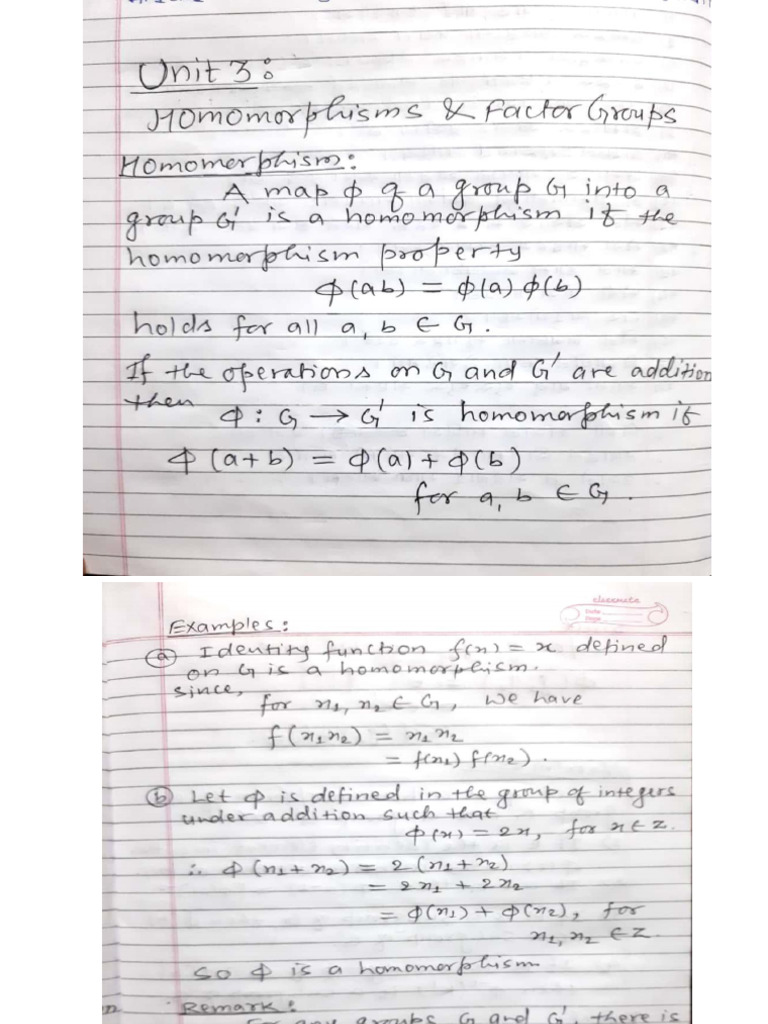 Unit 3:
Homomorphisms & Factor Groups
Homomorphism:
A map ϕ of a group G into a
group G' is a homomorphism if the
homomorphism property
ϕ(ab) = ϕ(a) ϕ(b)
holds for all a, b ∈ G.
If the operations on G and G' are addition
then ϕ : G → G' is homomorphism if
ϕ(a+b) = ϕ(a) + ϕ(b)
for a, b ∈ G.
classmate
Date
Page
Examples:
(a) Identity function f(x) = x defined
on G is a homomorphism.
since,
for x₁, x₂ ∈ G, we have
f(x₁x₂) = x₁x₂
= f(x₁) f(x₂).
(b) Let ϕ is defined in the group of integers
under addition such that
ϕ(x) = 2x, for x ∈ Z.
∴ ϕ(x₁+x₂) = 2(x₁+x₂)
= 2x₁ + 2x₂
= ϕ(x₁) + ϕ(x₂), for
x₁, x₂ ∈ Z
So ϕ is a homomorphism
Remark:
For any groups G and G', there is